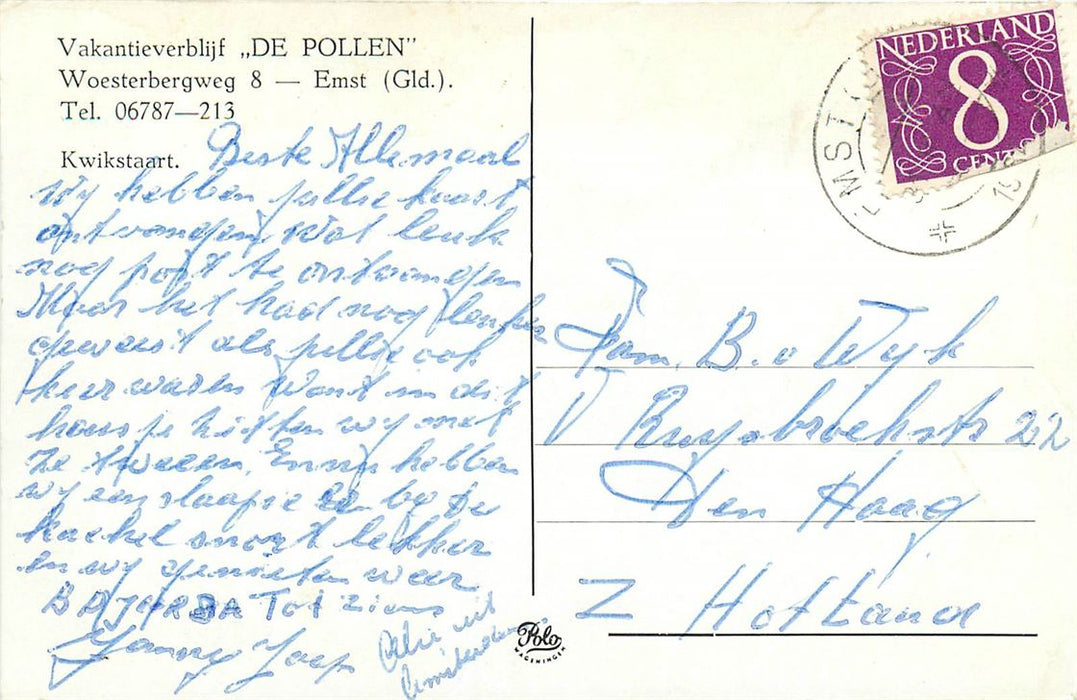 Vakantieverblijf „DE POLLEN”
Woesterbergweg 8 — Emst (Gld.).
Tel. 06787—213
Kwikstaart. Beste Allemaal
Wy hebben jullie kaart
ontvangen, Wat leuk
nog post te ontvangen
Maar het had nog leuker
geweest als jullie ook
hier waren Want in dit
huisje zitten wy met
ze tweeen, En nu hebben
wy een slaapje by de
kachel snort lekker
En wy genieten weer
Tot ziens
Jaap
uit
Amsterdam
Polo
WAGENINGEN
NEDERLAND
8
CENT
EMST
Fam. B. v Wyk
V Ruysbroekstr 22
Den Haag
Z Holland